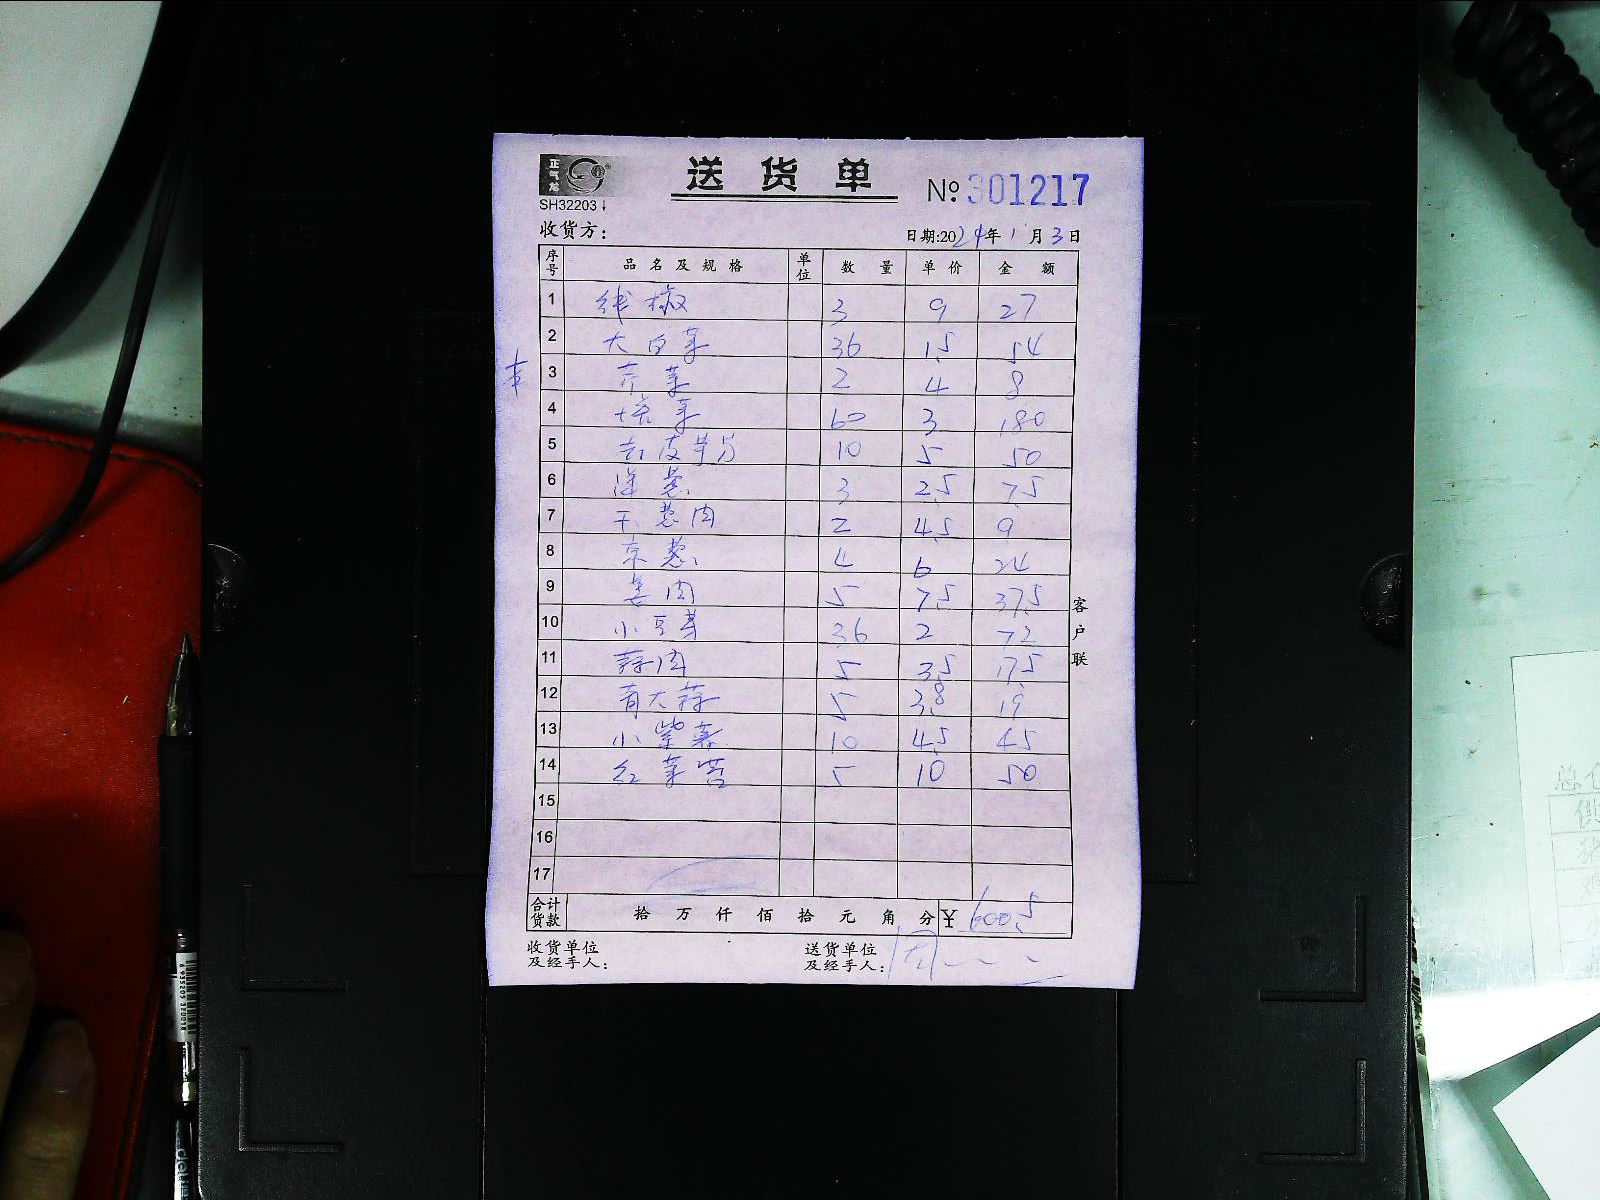 正气龙
送货单
№ 301217
SH32203
收货方：
日期:2024年1月3日
序号 品名及规格 单位 数量 单价 金额
1 线椒 3 9 27
2 大白菜 36 1.5 54
3 芹菜 2 4 8
4 菜 60 3 180
5 去皮芋艿 10 5 50
6 洋葱 3 2.5 7.5
7 干葱肉 2 4.5 9
8 京葱 4 6 24
9 姜肉 5 7.5 37.5
10 小豆芽 36 2 72
11 蒜肉 5 3.5 17.5
12 青大蒜 5 3.8 19
13 小紫 10 4.5 45
14 红菜苔 5 10 50
15
16
17
合计货款 拾 万 仟 佰 拾 元 角 分 ¥ 600.5
收货单位及经手人：
送货单位及经手人：
客户联